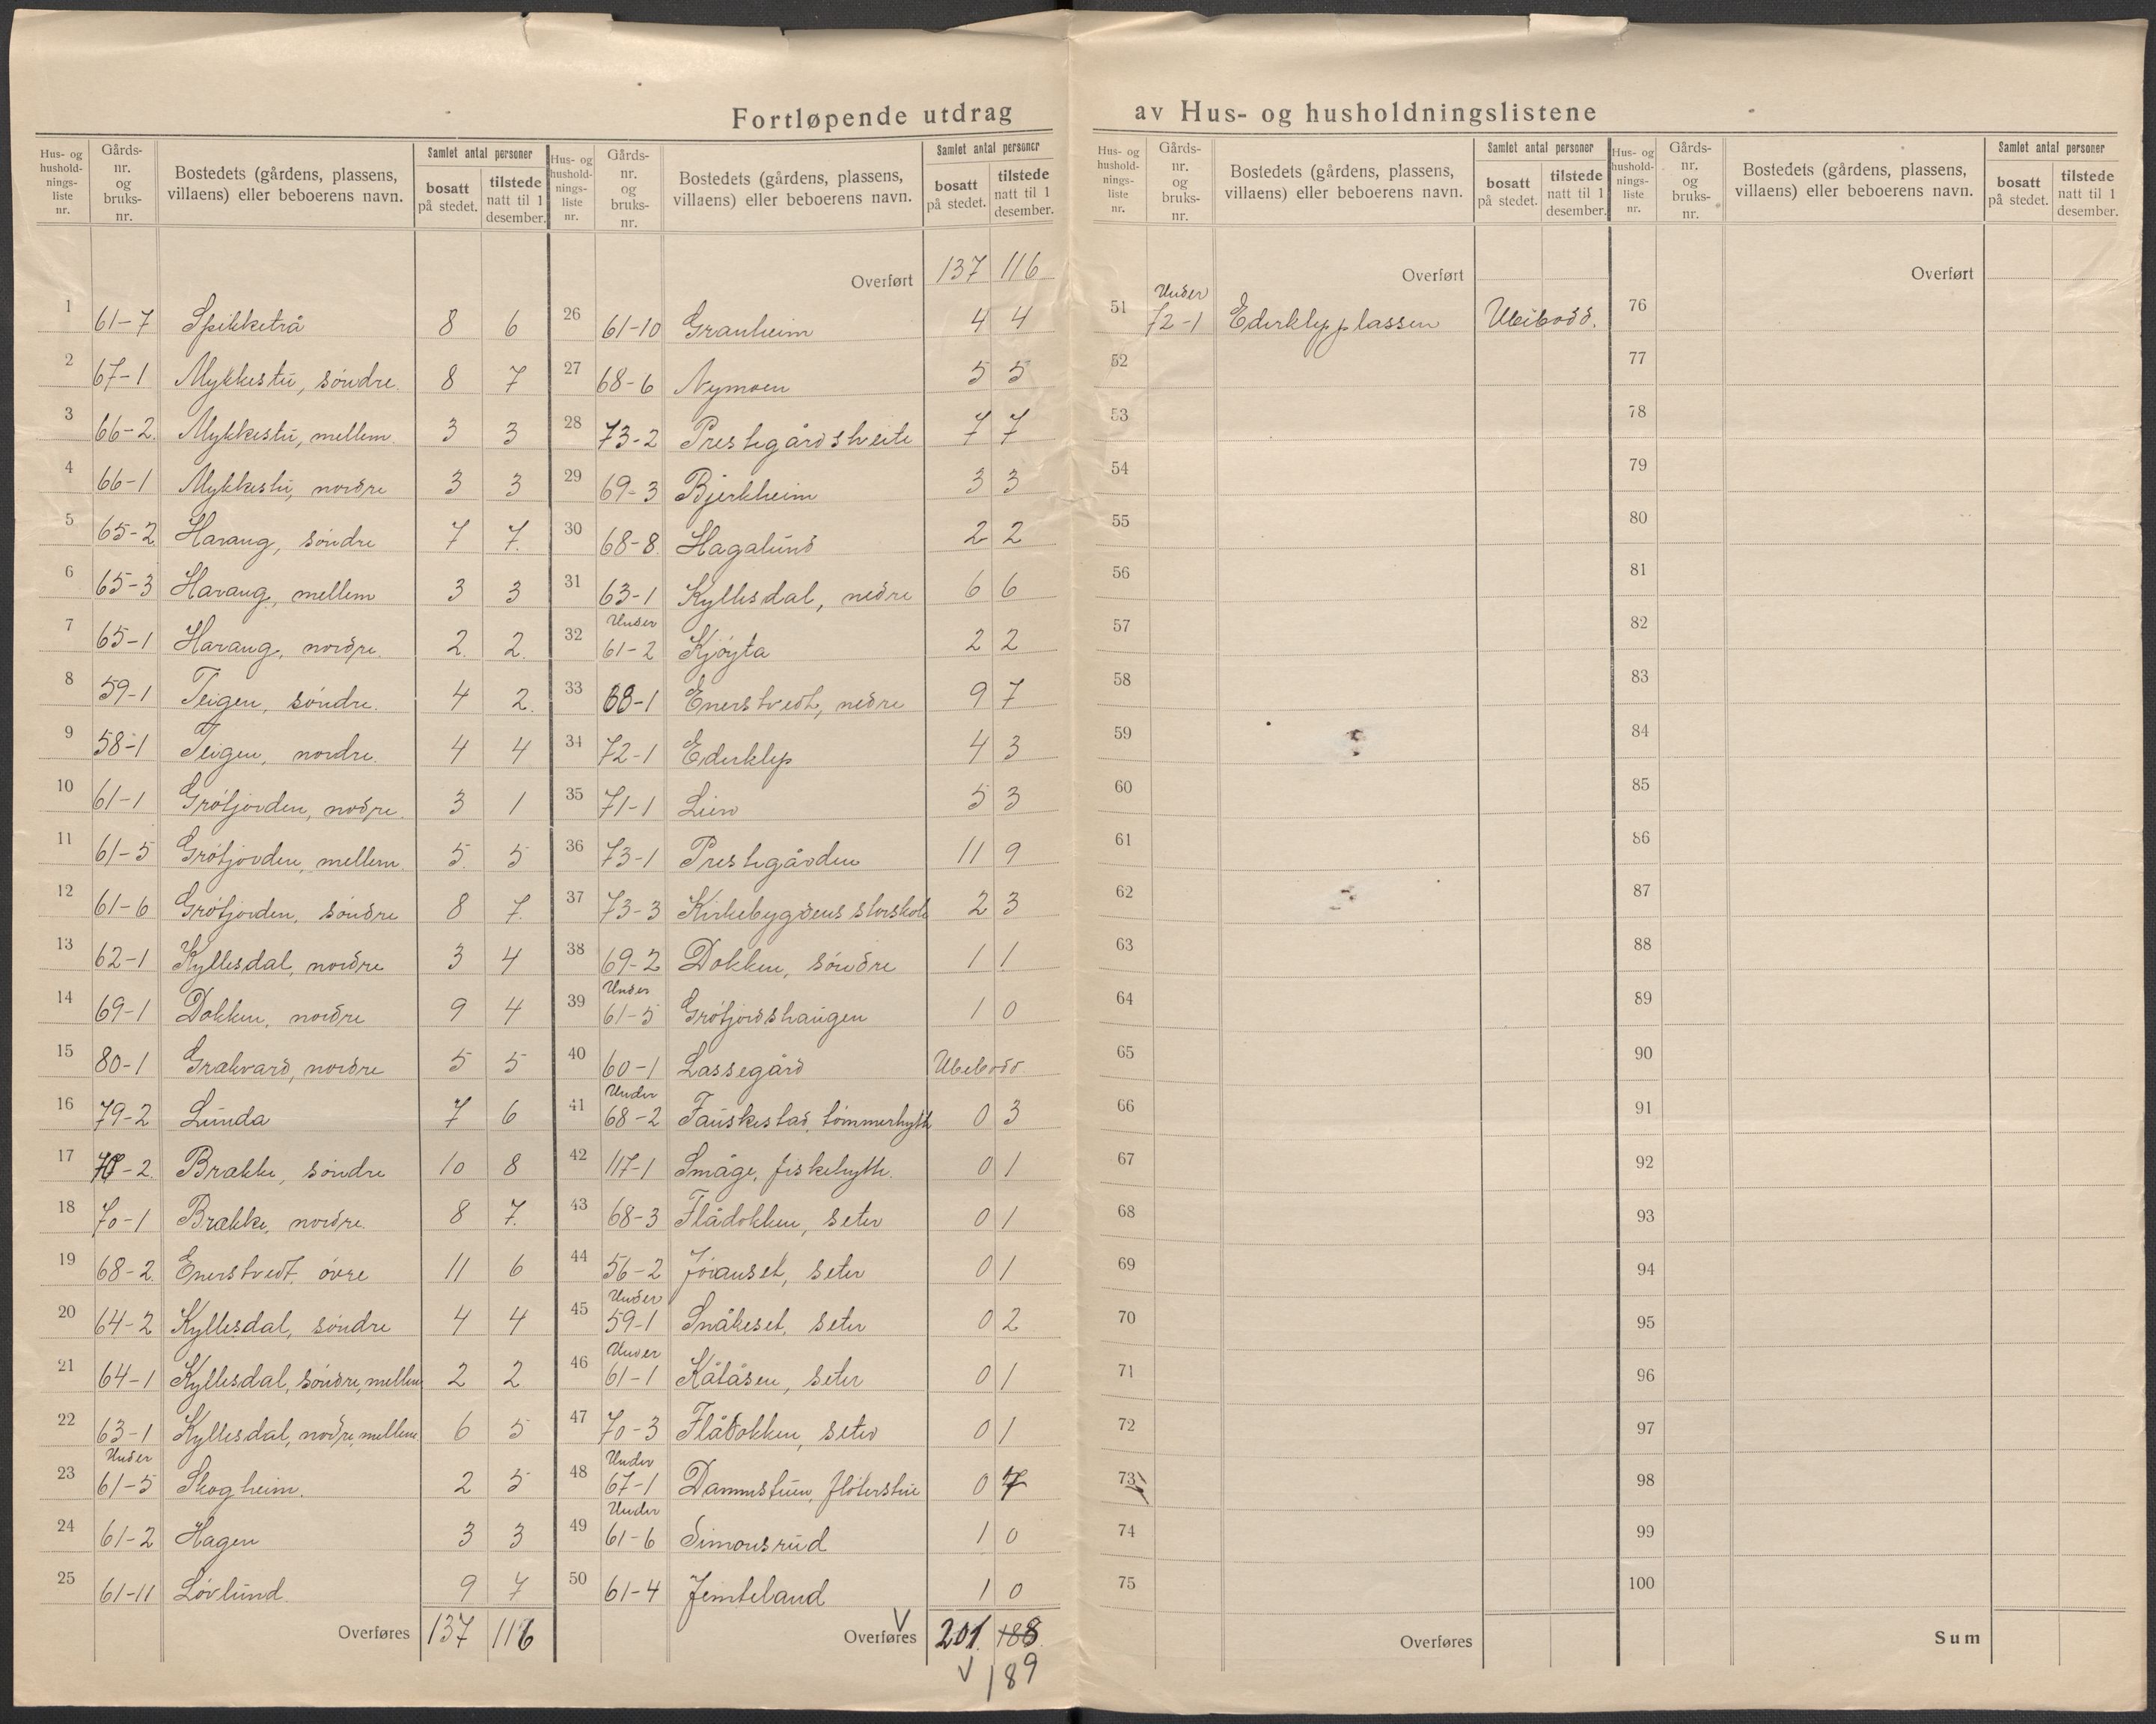 Fortløpende utdrag av Hus- og husholdningslistene
Hus- og hushold- nings- liste nr. | Gårds- nr. og bruks- nr. | Bostedets (gårdens, plassens, villaens) eller beboerens navn. | Samlet antal personer | bosatt på stedet. | tilstede natt til 1 desember.
1 61-7 Spikketrå 8 6
2 67-1 Mykkestu, søndre. 8 7
3 66-2. Mykkestu, mellem. 3 3
4 66-1 Mykkestu, nordre 3 3
5 65-2 Harang, søndre 7 7.
6 65-3 Harang, mellem 3 3
7 65-1 Harang, nordre. 2. 2.
8 59-1 Teigen, søndre. 4 2.
9 58-1 Teigen, nordre. 4 4
10 61-1 Grøtjorden, nordre. 3 1
11 61-5 Grøtjorden, mellem. 5. 5
12 61-6 Grøtjorden, søndre 8 7.
13 62-1 Kyllesdal, nordre 3 4
14 69-1 Dokken, nordre 9 4
15 80-1 Grakvard, nordre 5 5
16 79-2 Lunda 7 6
17 70-2. Brække, søndre 10 8
18 70-1 Brække, nordre. 8 7.
19 68-2. Enerstvedt, øvre 11 6
20 64-2 Kyllesdal, søndre 4 4
21 64-1 Kyllesdal, søndre, mellem 2 2
22 63-1 Kyllesdal, nordre, mellem 6 5
23 Under 61-5 Skogheim. 2 5
24 61-2 Hagen 3 3
25 61-11 Løvlund. 9 7
Overføres 137 116
Hus- og hushold- nings- liste nr. | Gårds- nr. og bruks- nr. | Bostedets (gårdens, plassens, villaens) eller beboerens navn. | Samlet antal personer | bosatt på stedet. | tilstede natt til 1 desember.
Overført 137 116
26 61-10 Granheim 4 4
27 68-6 Nymoen 5 5
28 73-2 Prestegårdstveite 7 7
29 69-3 Bjerkheim 3 3
30 68-8. Hagalund 2 2
31 63-1 Kyllesdal, nedre 6 6
32 Under 61-2 Kjøyta 2 2
33 68-1 Enerstvedt, nedre 9 7
34 72-1 Ederklep 4 3
35 71-1 Lien 5 3
36 73-1 Prestegården 11 9
37 73-3 Kirkebygdens storskole 2 3
38 69-2 Dokken, søndre 1 1
39 Under 61-5 Grøtjordshaugen 1 0
40 60-1 Lassegård Ubebodd.
41 Under 68-2 Fauskestad, tømmerhytte 0 3
42 117-1 Småge, fiskehytte. 0 1
43 68-3 Flådokken, seter 0 1
44 56-2 Jøranset, seter 0 1
45 Under 59-1 Snåkeset, seter 0 2
46 Under 61-1 Kåtåsen, seter 0 1
47 70-3 Flådokken, seter 0 1
48 Under 67-1 Dammstuen, fløterstue 0 7
49 Under 61-6 Simonsrud 1 0
50 61-4 Jemteland 1 0
Overføres 201. 188.
189
Hus- og hushold- nings- liste nr. | Gårds- nr. og bruks- nr. | Bostedets (gårdens, plassens, villaens) eller beboerens navn. | Samlet antal personer | bosatt på stedet. | tilstede natt til 1 desember.
Overført
51 Under 72-1 Ederklepplassen Ubebodd.
52
53
54
55
56
57
58
59
60
61
62
63
64
65
66
67
68
69
70
71
72
73
74
75
Overføres
Hus- og hushold- nings- liste nr. | Gårds- nr. og bruks- nr. | Bostedets (gårdens, plassens, villaens) eller beboerens navn. | Samlet antal personer | bosatt på stedet. | tilstede natt til 1 desember.
Overført
76
77
78
79
80
81
82
83
84
85
86
87
88
89
90
91
92
93
94
95
96
97
98
99
100
Sum